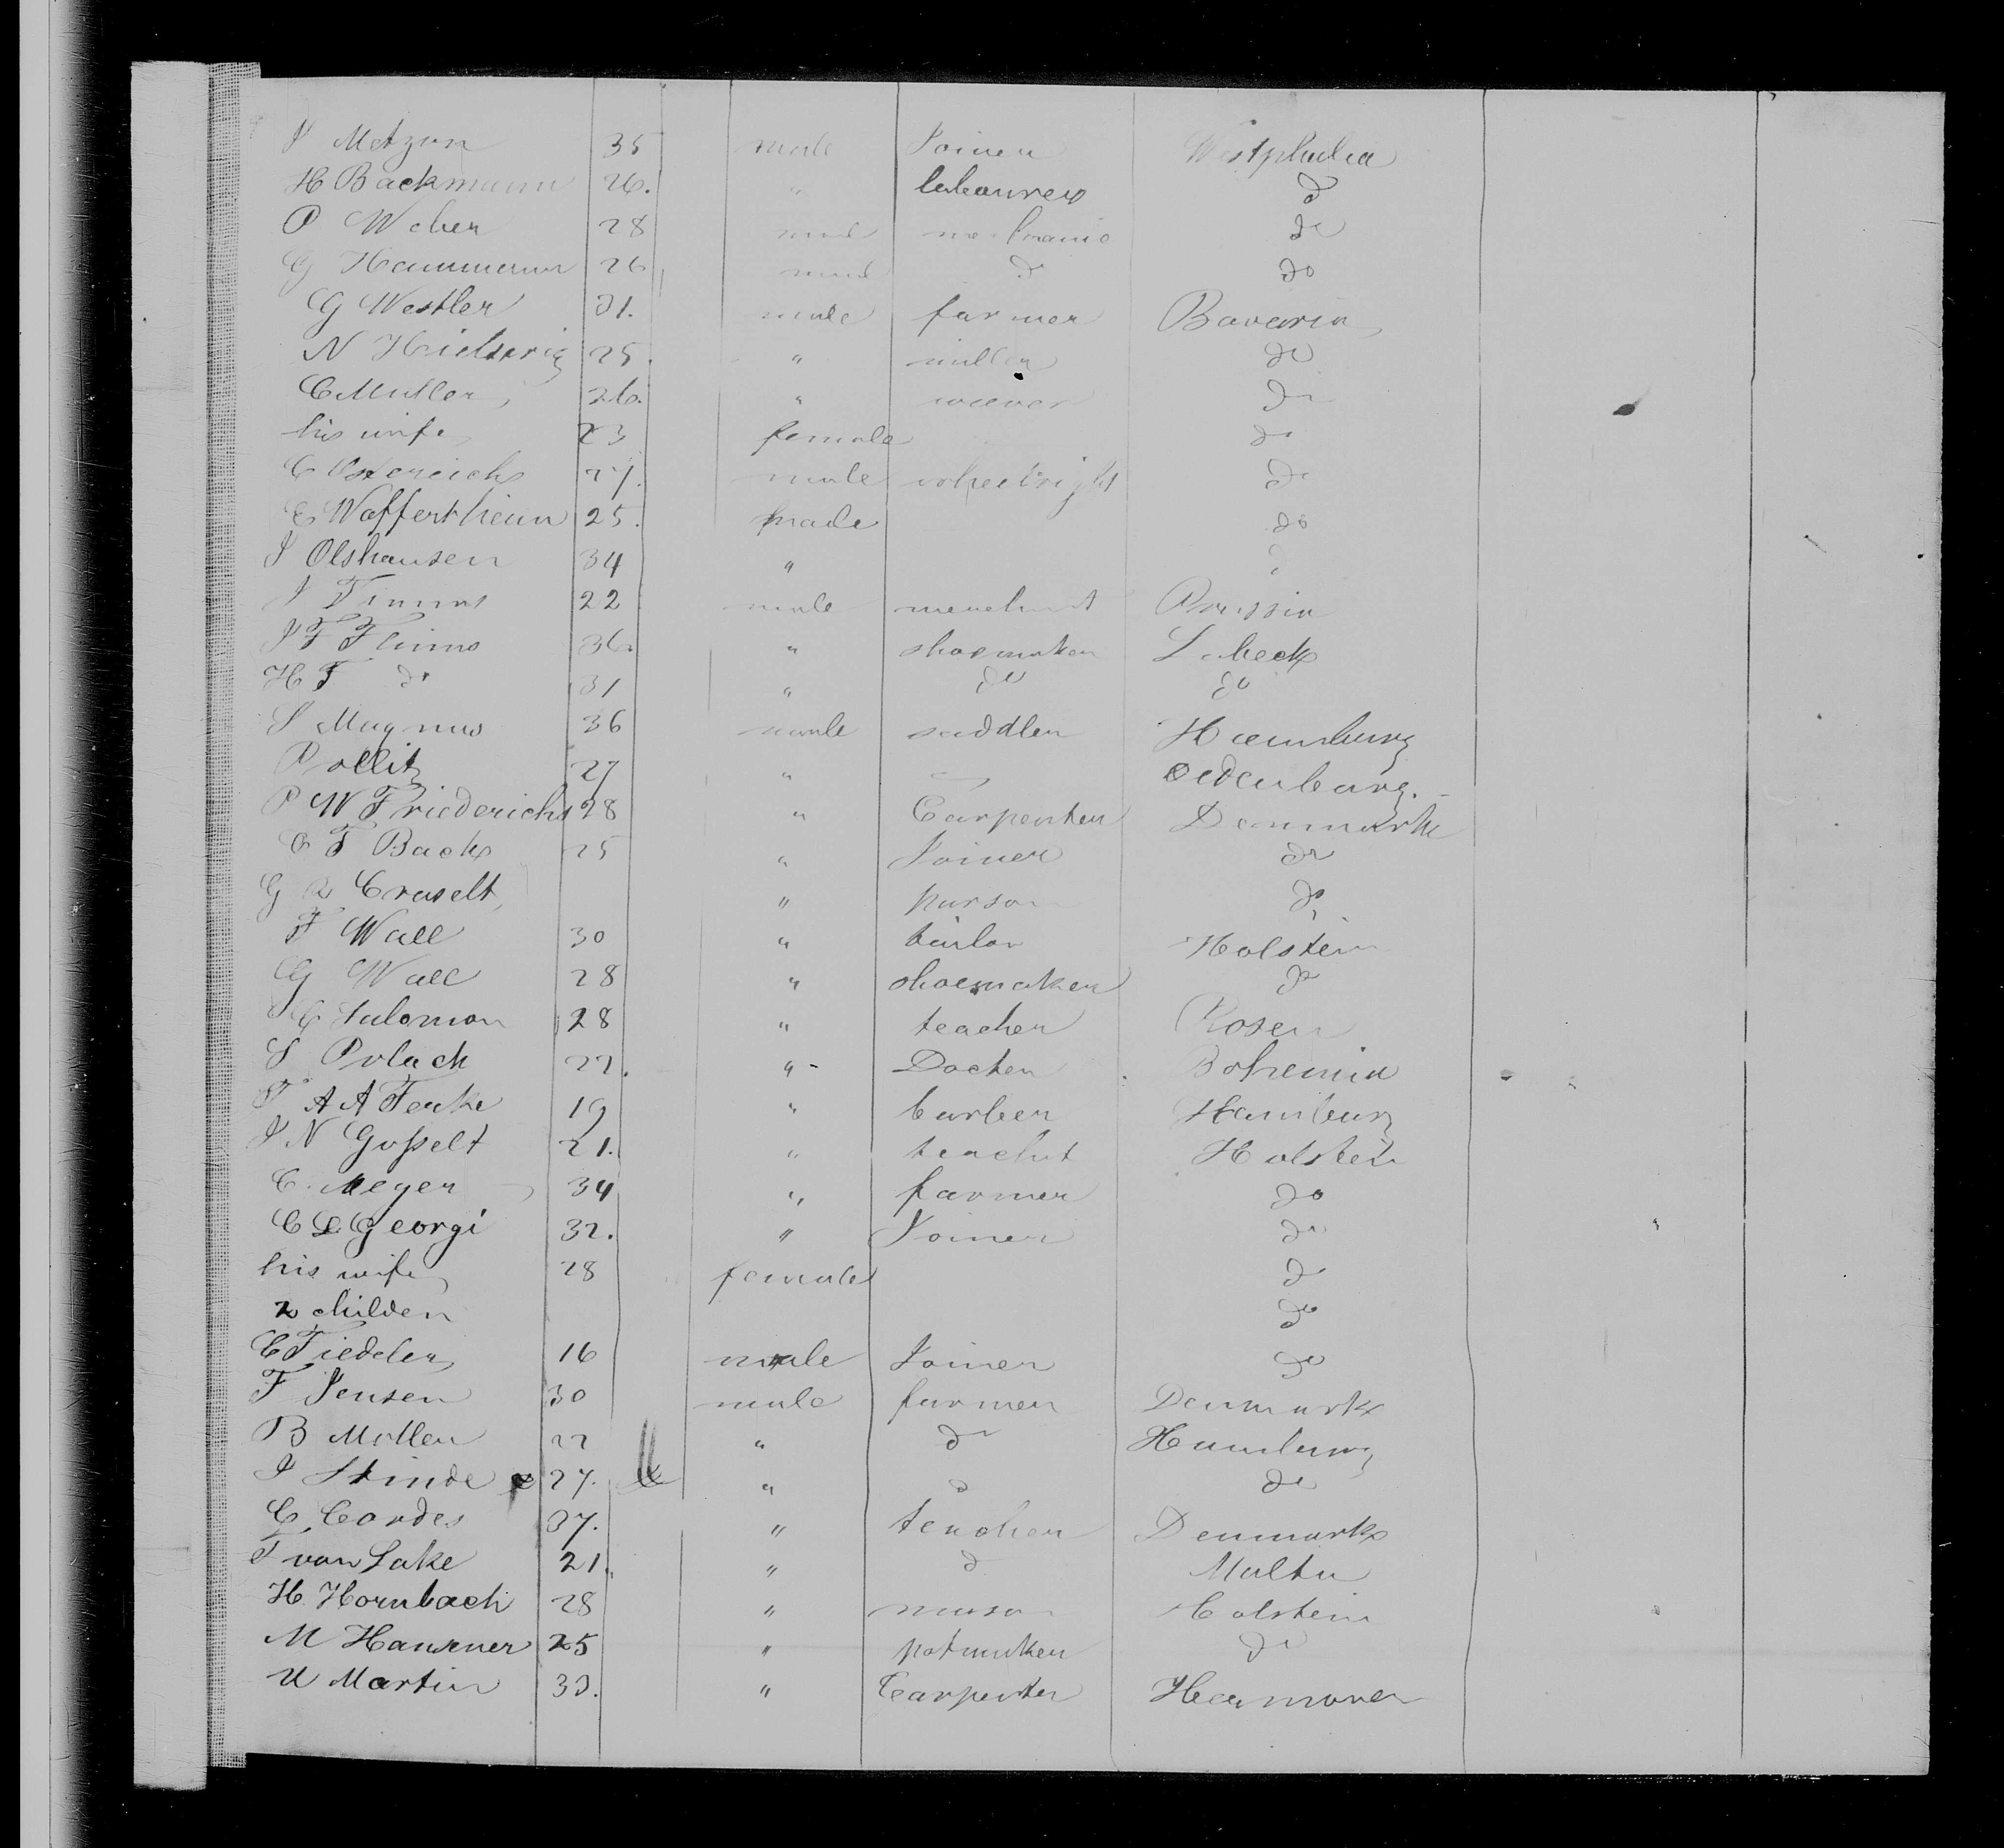 J Metzun 35 male Joiner Westphalia
H Backmann 26. " labourer d
P Weber 28 male mechanic do
G Hammann 26 male d do
G Westler 31. male farmer Bavaria
N 25. " miller do
C Muller 26. " weaver do
his wife 23 female do
C Ostereich 27. male wheelright do
C Waffertheim 25. male do
J Olshausen 34 "
J Timms 22 male merchant Prussia
J F Flims 36. " shoemaker Lubeck
H F do 31 " do do
S Magnus 36 male saddler Hamburg
Pollitz 27 " Oldenburg.
P W Friederichs 28 " Carpenter Denmark
C F Back 25 " Joiner do
G R Craselt " parson do
F Wall 30 " tailor Holstein
G Wall 28 " shoemaker do
C Salomon 28 " teacher Posen
S Polack 22. " - Docter Bohemia
F A A Fenke 19 " barber Hamburg
J N Goßelt 21. " Holstein
C. Meyer 34 " farmer do
C L Georgi 32. " Joiner do
his wife 28 female do
2 childen do
C Fiedeler 16 male Joiner do
F Jensen 30 male farmer Denmark
B Moller 22 " do Hamburg
J Stinde 27. " d do
C Cordes 37. " teacher Denmark
F von Lake 21. " d Malta
H. Hornbach 28 " mason Holstein
M Hausner 25 " potmaker do
U Martin 33. " Carpenter Hannover